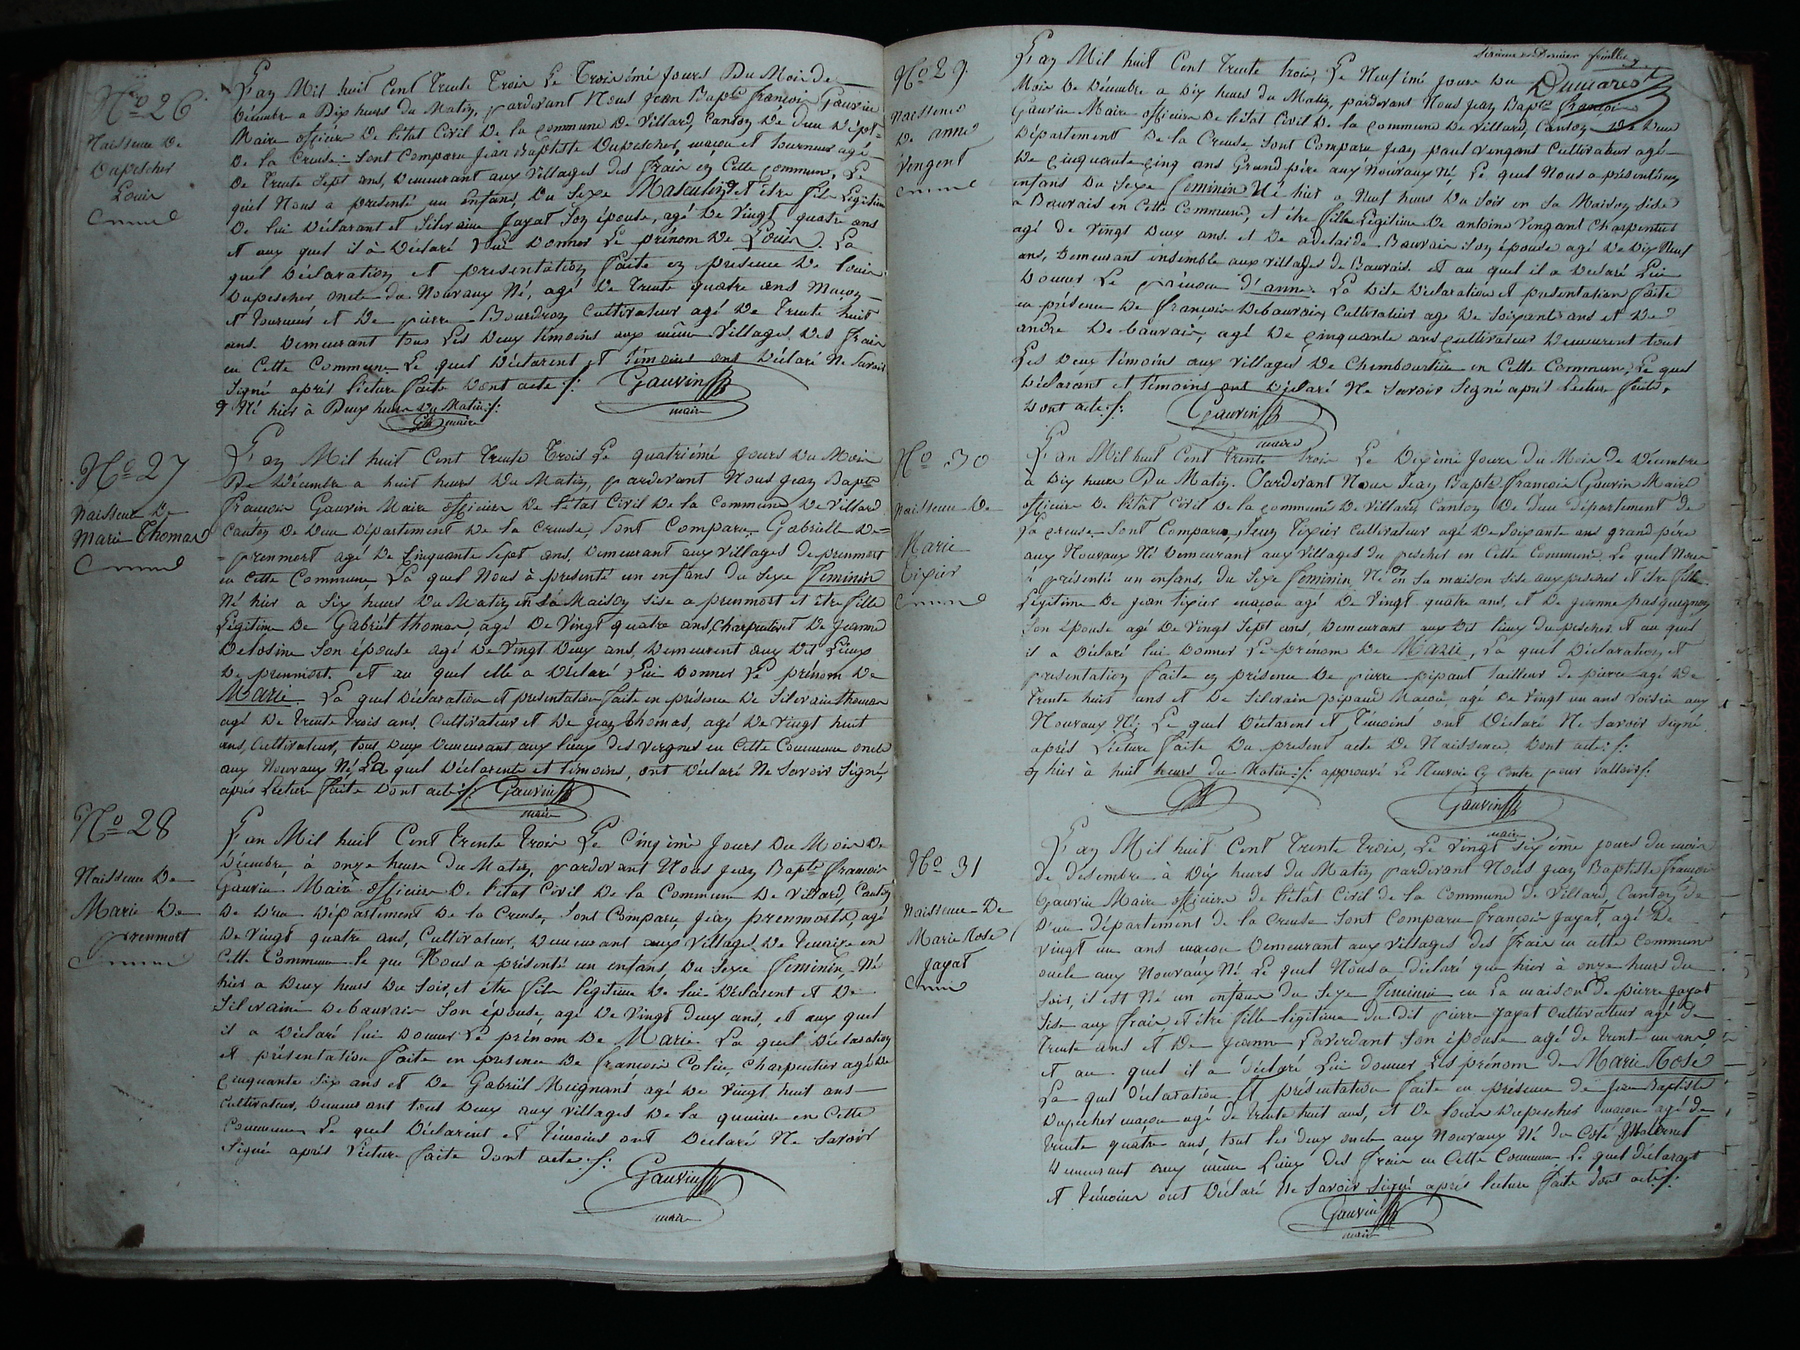 N.º 26
Naissence De
Dupescher
Louis
L'an Mil huit Cent Trente Trois Le Troisiémé Jours Du Mois de
Décembre a Dix heurs du Matin, pardevant Nous Jean Bapte françois Gauvin
Maire officier De l'état Civil De la Commune De Villard, Canton De Dun Dépt
De la Creuse. Sont Comparu Jean Baptiste Dupescher, maçon et tourneur agé
De trente Sept ans, Demeurant aux Villages des frais en Cette Commune, Le
quel Nous a présenté un Enfans, Du Sexe Masculin et être fils Légitime
De lui Déclarant et Silvraine Jayat Son épouse, agé De Vingt quatre ans
et aux quel il à Déclaré lui Donner Le prénom De Louis. La
quel Déclaration et presentation faite en présence De louis
Dupescher oncle du Nouvaux Né, agé De trente quatre ans Maçon
et tourneur et De pierre Bourdron Cultivateur agé De trente huit
ans. Demeurant tous Les Deux témoins aux même Villages Des frais
en Cette Commune Le quel Déclarent et témoins ont Déclaré Ne Savoir
Signé aprés lecture faite Dont acte
Gauvin
maire
Né hier à Deux heurs Du Matin
maire
N.º 27
Naissence De
Marie Thomas
L'an Mil huit Cent trente trois Le quatriémé Jours Du Mois
De Décembre a huit heurs Du Matin, pardevant Nous Jean Bapte
françois Gauvin Maire officier De l'état Civil De la Commune De Villard
Canton De Dun Département De la Creuse, Sont Comparu Gabrielle De
prenmort agé De Cinquante Sept ans, Demeurant aux Villages De prenmort
en Cette Commune La quel Nous à presenté un enfans du Sexe feminin
Né hier a Six heurs Du Matin en Sa Maison Sise a prenmort et être fille
Légitime De Gabriel thomas, agé De Vingt quatre ans, Charpentier et De Jeanne
Delosine Son épouse agé De Vingt Deux ans, Demeurent aux Dit Lieux
De prenmort. et au quel elle a Déclaré Lui Donner Le prénom De
Marie. La quel Déclaration et presentation faite en présence De Silvrain thomas
agé De trente trois ans. Cultivateur et De Jean thomas, agé De Vingt huit
ans, Cultivateur, tous Deux Demeurant aux lieux des vergnes en Cette Commune oncle
aux Nouvaux Né, La quel Déclarente et témoins, ont Déclaré Ne Savoir Signé
apres Lecture faite Dont acte
Gauvin
maire
N.º 28
Naissence De
Marie De
prenmort
L'an Mil huit Cent trente trois Le Cinqième Jours Du Mois De
Décembre, à onze heurs Du Matin, pardevant Nous Jean Bapte françois
Gauvin Maire officier De l'état Civil De la Commune De Villard, Canton
De Dun Département De la Creuse, Sont Comparu, Jean prenmort, agé
De Vingt quatre ans, Cultivateur, Demeurant aux Villages De en
Cette Commune le que Nous a présenté un enfans, Du Sexe feminin Né
hier a Deux heurs Du Soir, et être fille légitime De lui Déclarent et De
Silvraine Debauvais Son épouse, agé De Vingt deux ans, et aux quel
il a Déclaré lui Donner Le prénom De Marie La quel Déclaration
et présentation faite en présence De françois Charpentier agé De
Cinquante Six ans et De Gabriel Mugnant agé De Vingt huit ans
Cultivateur, Demeurant tous Deux aux Villages De la en Cette
Commune Le quel Déclarent et témoins ont Déclaré Ne Savoir
Signé aprés Lecture faite dont acte
Gauvin
maire
et Dernier feuillet
Dumarest
N.º 29.
Naissence
De anne
Vingent
L'an Mil huit Cent trente trois, Le Neuf imé Jour Du
Mois De Décembre a Dix heurs Du Matin, pardevant Nous Jean Bapte françois
Gauvin Maire officier De l'état Civil De la Commune De Villard, Canton De Dun
Département De la Creuse Sont Comparu Jean paul Vingent Cultivateur agé
De Cinquante Cinq ans Grand pére aux Nouvaux Né, Le quel Nous a présenté un
enfans Du Sexe feminin Né hier a Neuf heurs Du Soir en Sa Maison Sise
a Bauvais en Cette Commune, et être fille Légitime De antoine Vingent Charpentier
agé de Vingt Deux ans et De adelaide Bauvais Son épouse agé De Dix Neuf
ans, Demeurant insemble aux villages de Bauvais et au quel il a Déclaré Lui
Donner Le prénom d'anne. La Dite Declaration et presentation faite
en présence De françois Debauvais, Cultivateur agé De Soixante ans et De
andre De bauvais, agé De Cinquante ans Cultivateur Demeurent tout
Les Deux témoins aux Villages De Chemboutin en Cette Commune, Le quel
Déclarant et témoins ont Déclaré Ne Savoir Signé aprés Lecture faite,
Dont acte
Gauvin
maire
N.º 30
Naissence De
Marie
Tixier
L'an Mil huit Cent trente trois Le Dixième Jours Du Mois De Décembre
a Dix heurs Du Matin. Pardevant Nous Jean Bapte françois Gauvin Maire
officier De l'état Civil De la Commune De Villard, Canton De Dun Département de
La Creuse Sont Comparu, Jean Tixier Cultivateur agé De Soixante ans grand pére
aux Nouvaux Né Demeurant aux Villages Du pescher en Cette Commune. Le quel Nous
à présenté un enfans, du Sexe feminin Né en Sa maison Sise aux pescher et être fille
Légitime De jean tixier maçon agé De Vingt quatre ans, et De jeanne pasquignon
Son épouse agé De Vingt Sept ans, Demeurant aux Dit lieux du pescher. et au quel
il a Déclaré lui Donner Le prénom De Marie, La quel Déclaration et
présentation faite en présence De pierre pipaut tailleur de pierre agé De
trente huit ans et De Silvrain pipaud Maçon agé De Vingt un ans Voisin aux
Nouvaux Né; Le quel Déclarent et Témoins ont Déclaré Ne Savoir Signé
aprés Lecture faite Du present acte De Naissence. Dont acte
hier à huit heurs du Matin approuvé Le Renvoie Ci Contre pour valloir
Gauvin
maire
N.º 31
Naissence De
Marie Rose
Jayat
L'an Mil huit Cent Trente Trois, Le Vingt Sixième jours du mois
de desembre à Dix heurs du Matin pardevant Nous Jean Baptiste françois
Gauvin Maire officier de l'état Civil de la Commune De Villard, Canton de
Dun département de la Creuse Sont Comparu françois Jayat, agé De
Vingt un ans maçon Demeurant aux Villages des frais en cette commune
oncle aux Nouvaux Né Le quel Nous a déclaré que hier à onze heurs du
Soir, il est Né un enfans du Sexe feminin en La maison de pierre Jayat
Sise aux frais et être fille légitime du dit pierre Jayat Cultivateur agé de
trente ans et De Jeanne Laverdant Son épouse agé de trente un ans
et au quel il a déclaré Lui donner Les prénom de Marie Rose
La quel Déclaration et présentation faite en présence de Jean Baptiste
Dupescher maçon agé de trente huit ans, et De louis Dupescher maçon agé de
trente quatre ans, tout les deux oncle aux Nouvaux Né du Coté Maternel
Demeurant aux même Lieux des frais en Cette Commune Le quel déclarant
et témoins ont Déclaré Ne Savoir Signé aprés lecture faite dont acte
Gauvin
maire